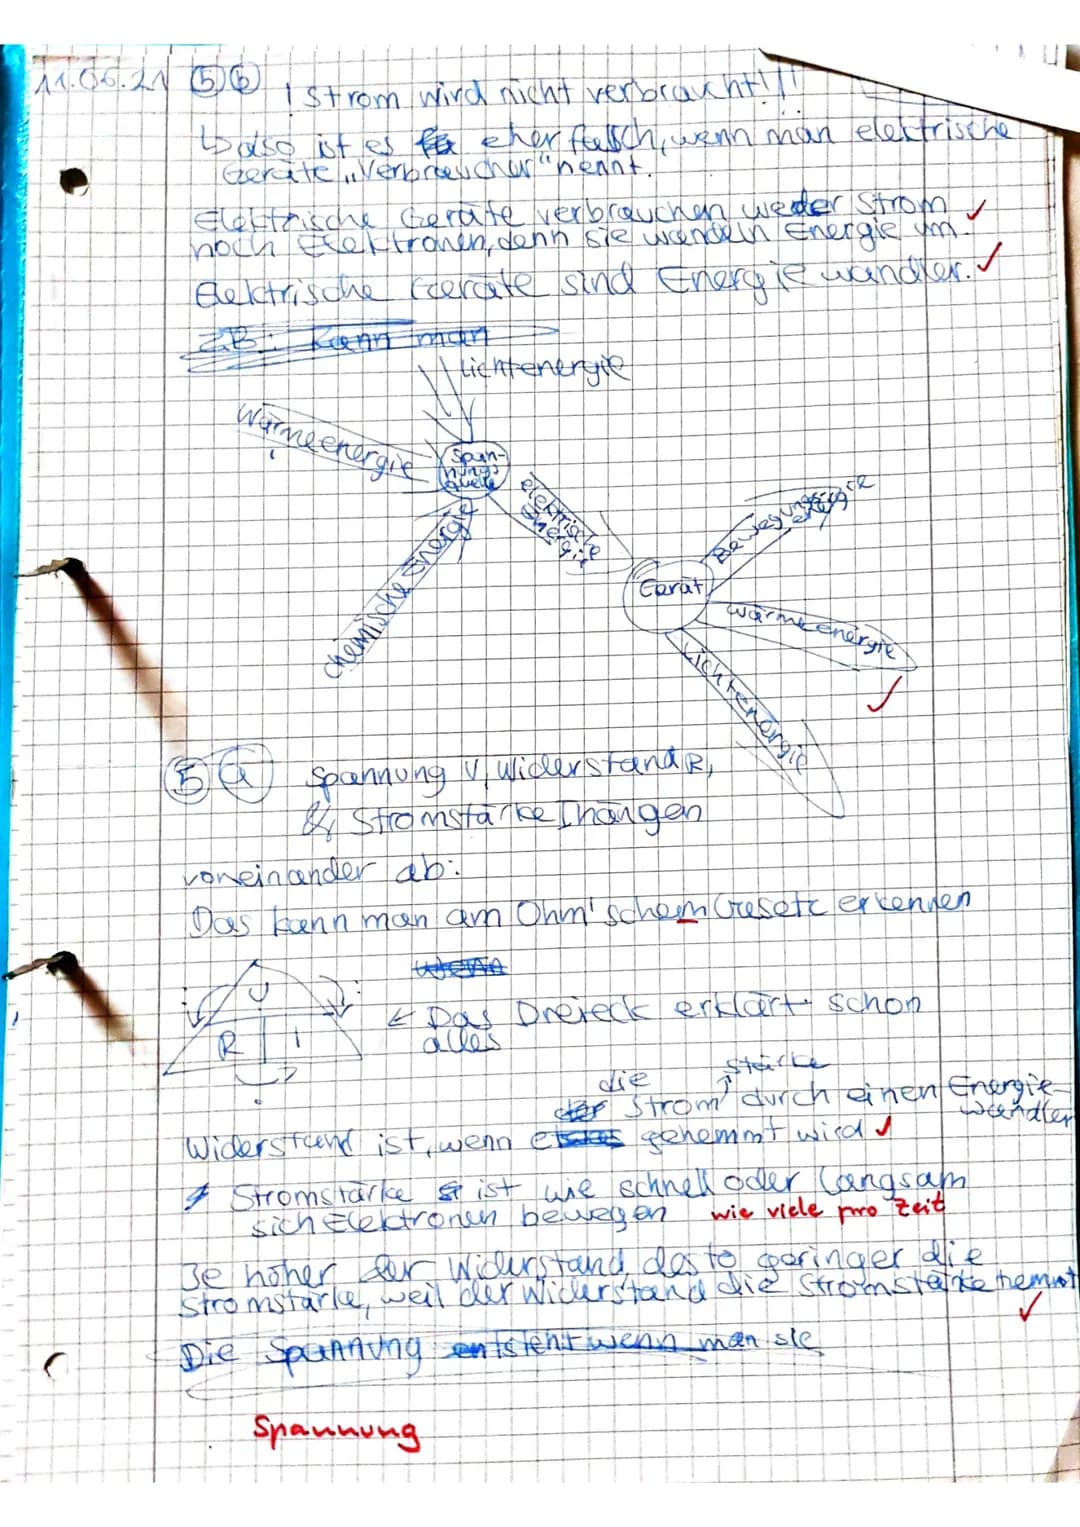 11.06.21 5 b ! Strom wird nicht verbraucht!!!
↳ also ist es eher falsch, wenn man elektrische
Geräte „Verbraucher" nennt.
Elektrische Geräte verbrauchen weder Strom ✓
noch Elektronen, denn sie wandeln Energie um.
Elektrische Geräte sind Energiewandler. ✓
z.B.: Kann man
Lichtenergie
Wärmeenergie
Span-
nungs
quelle
elektrische
Energie
chemische Energie
Bewegungs
energie
Gerät
Wärmeenergie
Lichtenergie
5 a Spannung U, Widerstand R,
& Stromstärke I hängen
voneinander ab:
Das kann man am Ohm'schem Gesetz erkennen
wenn
U
R I
← Das Dreieck erklärt schon
alles
die stärke
der Strom durch einen Energie-
wandler
Widerstand ist, wenn gehemmt wird ✓
Stromstärke ist wie schnell oder langsam
sich Elektronen bewegen wie viele pro Zeit
Je höher der Widerstand desto geringer die
Stromstärke, weil der Widerstand die Stromstärke hemmt
✓
Die Spannung entsteht wenn man sie
Spannung